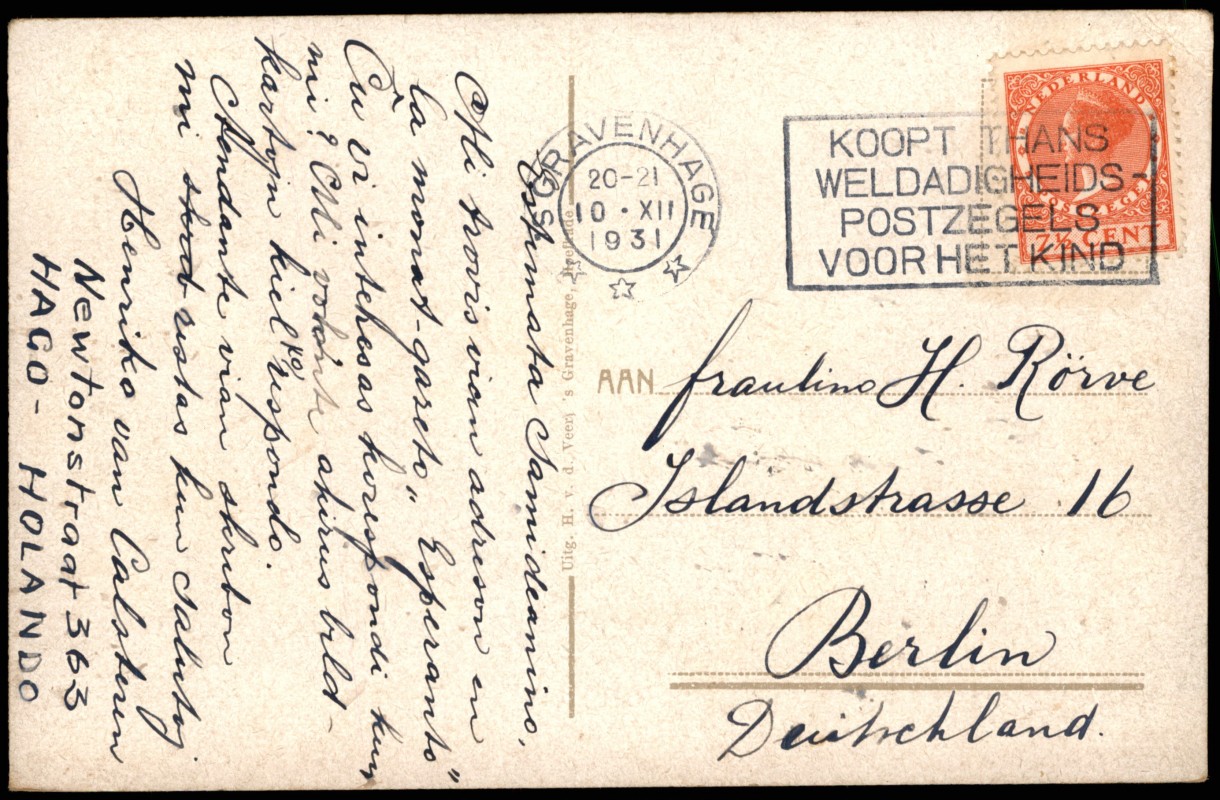 Estimata Samideanino,
Mi trovis vian adreson en
la monat-gazeto „Esperanto"
Ĉu vi interesas korespondi kun
mi? Mi volonte aĉirus bild-
kartojn kiel respondo.
Atendante vian skribon
mi restas kun salutoj
Henriko van Calsteren
Newtonstraat 363
HAGO - HOLANDO
Uitg. H. v. d. Veer, 's Gravenhage, Hoefkade
'S GRAVENHAGE
20-21
10 · XII
1931
KOOPT THANS
WELDADIGHEIDS-
POSTZEGELS
VOOR HET KIND
NEDERLAND
POSTZEGEL
7½ CENT
AAN fraulino H. Rörve
Islandstrasse 16
Berlin
Deutschland.